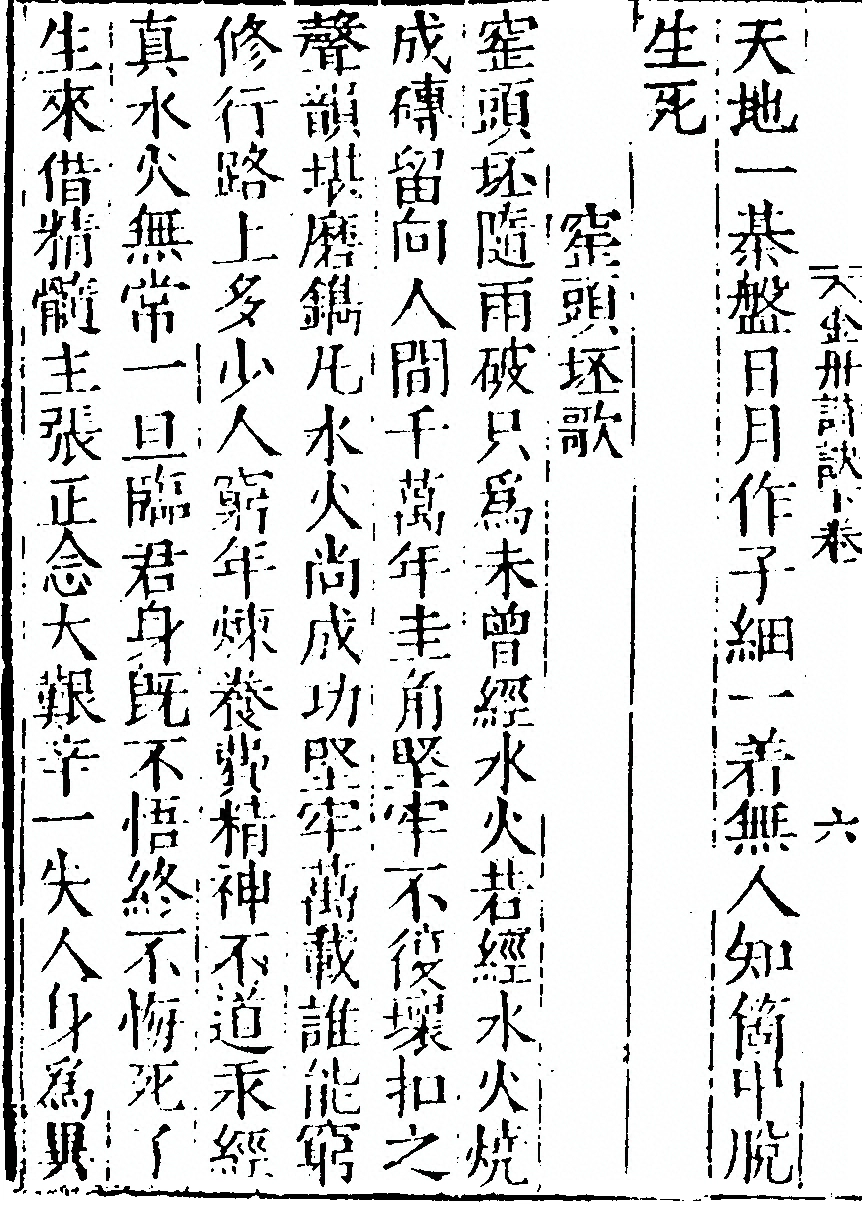 金丹詩訣下卷
六
天地一棊盤日月作子細一着無人知箇中脫
生死
窑頭坯歌
窑頭坯隨雨破只爲未曾經水火若經水火燒
成磚留向人間千萬年圭角堅牢不復壞扣之
聲韻堪磨鐫凡水火尚成功堅牢萬載誰能窮
修行路上多少人窮年煉養費精神不道未經
真水火無常一旦臨君身既不悟終不悔死了
生來借精髓主張正念大艱辛一失人身爲異